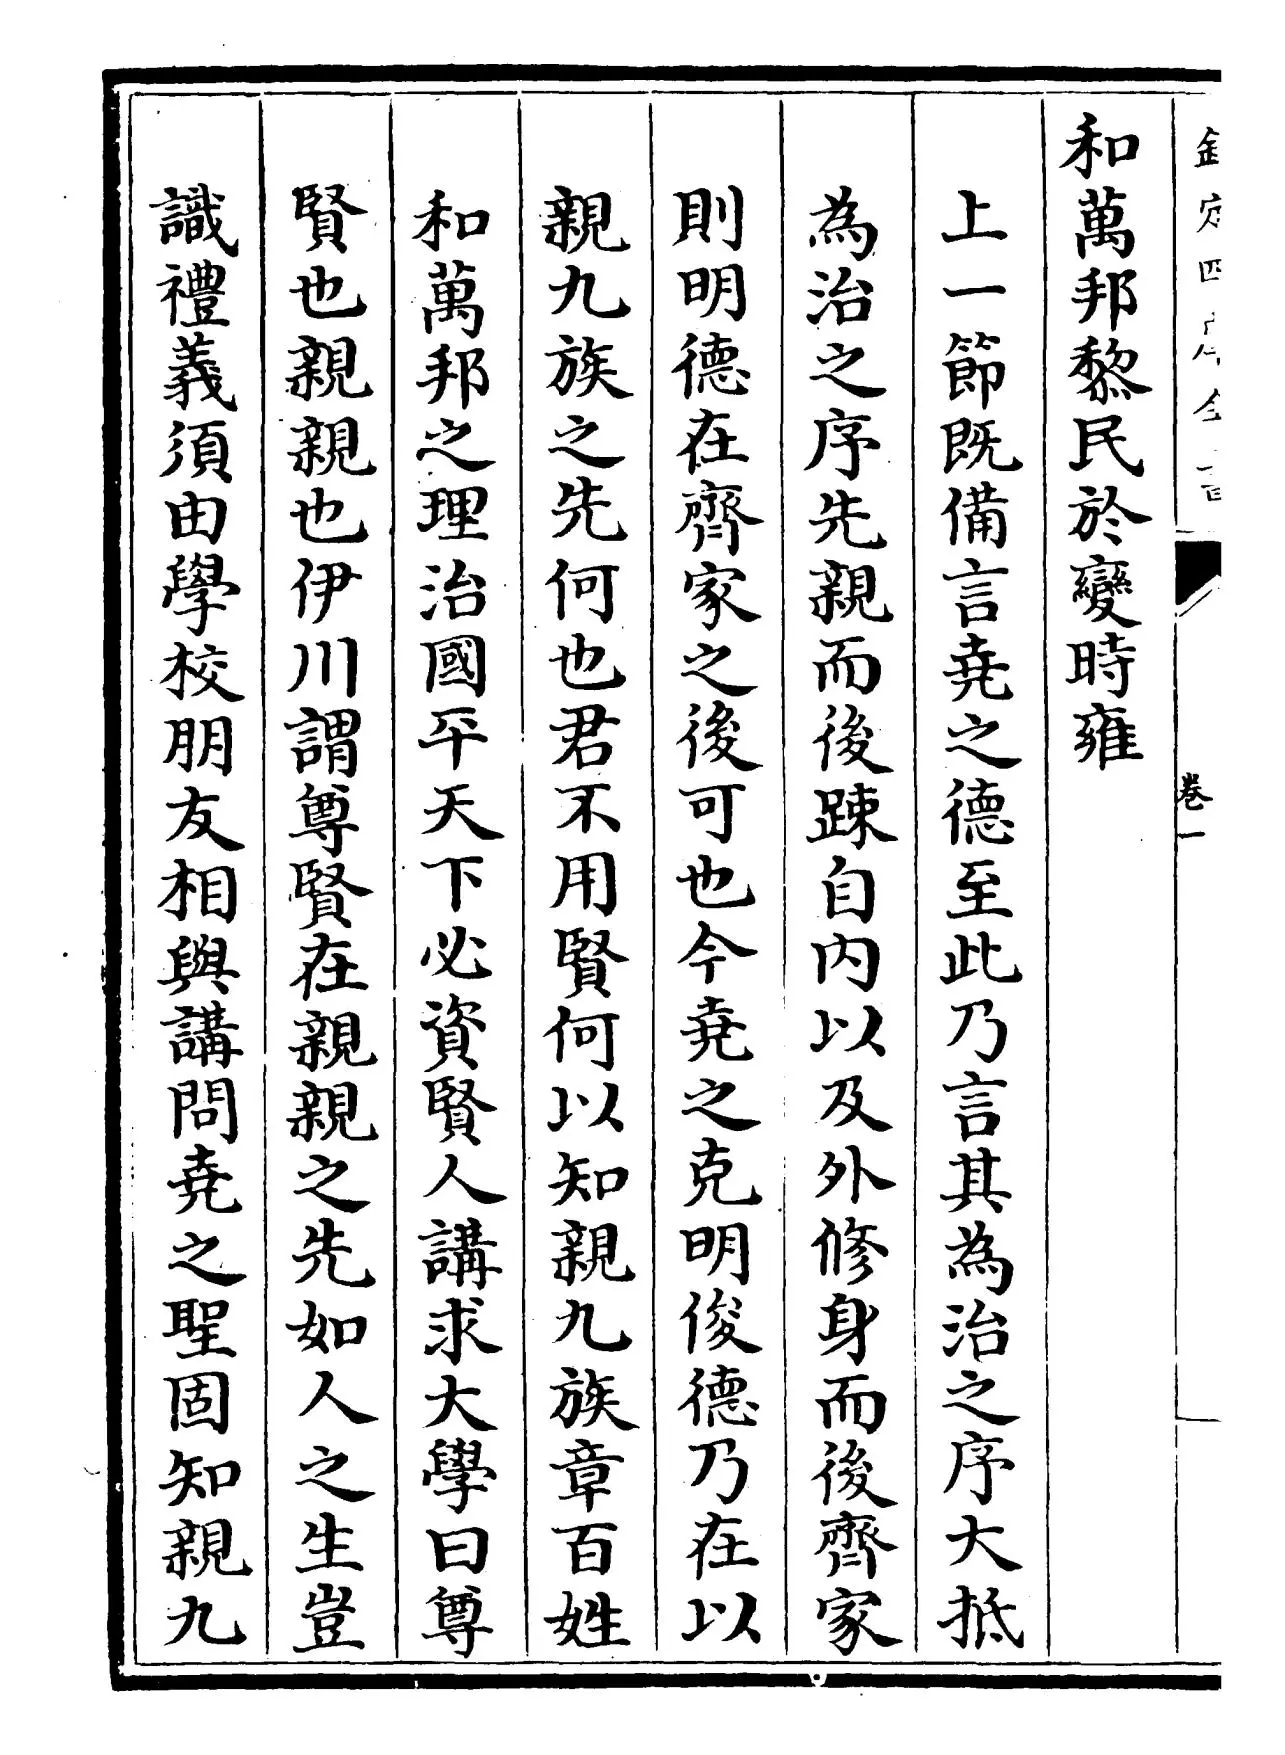 欽定四庫全書
卷一
和萬邦黎民於變時雍
上一節既備言堯之德至此乃言其為治之序大抵
為治之序先親而後踈自內以及外修身而後齊家
則明德在齊家之後可也今堯之克明俊德乃在以
親九族之先何也君不用賢何以知親九族章百姓
和萬邦之理治國平天下必資賢人講求大學曰尊
賢也親親也伊川謂尊賢在親親之先如人之生豈
識禮義須由學校朋友相與講問堯之聖固知親九